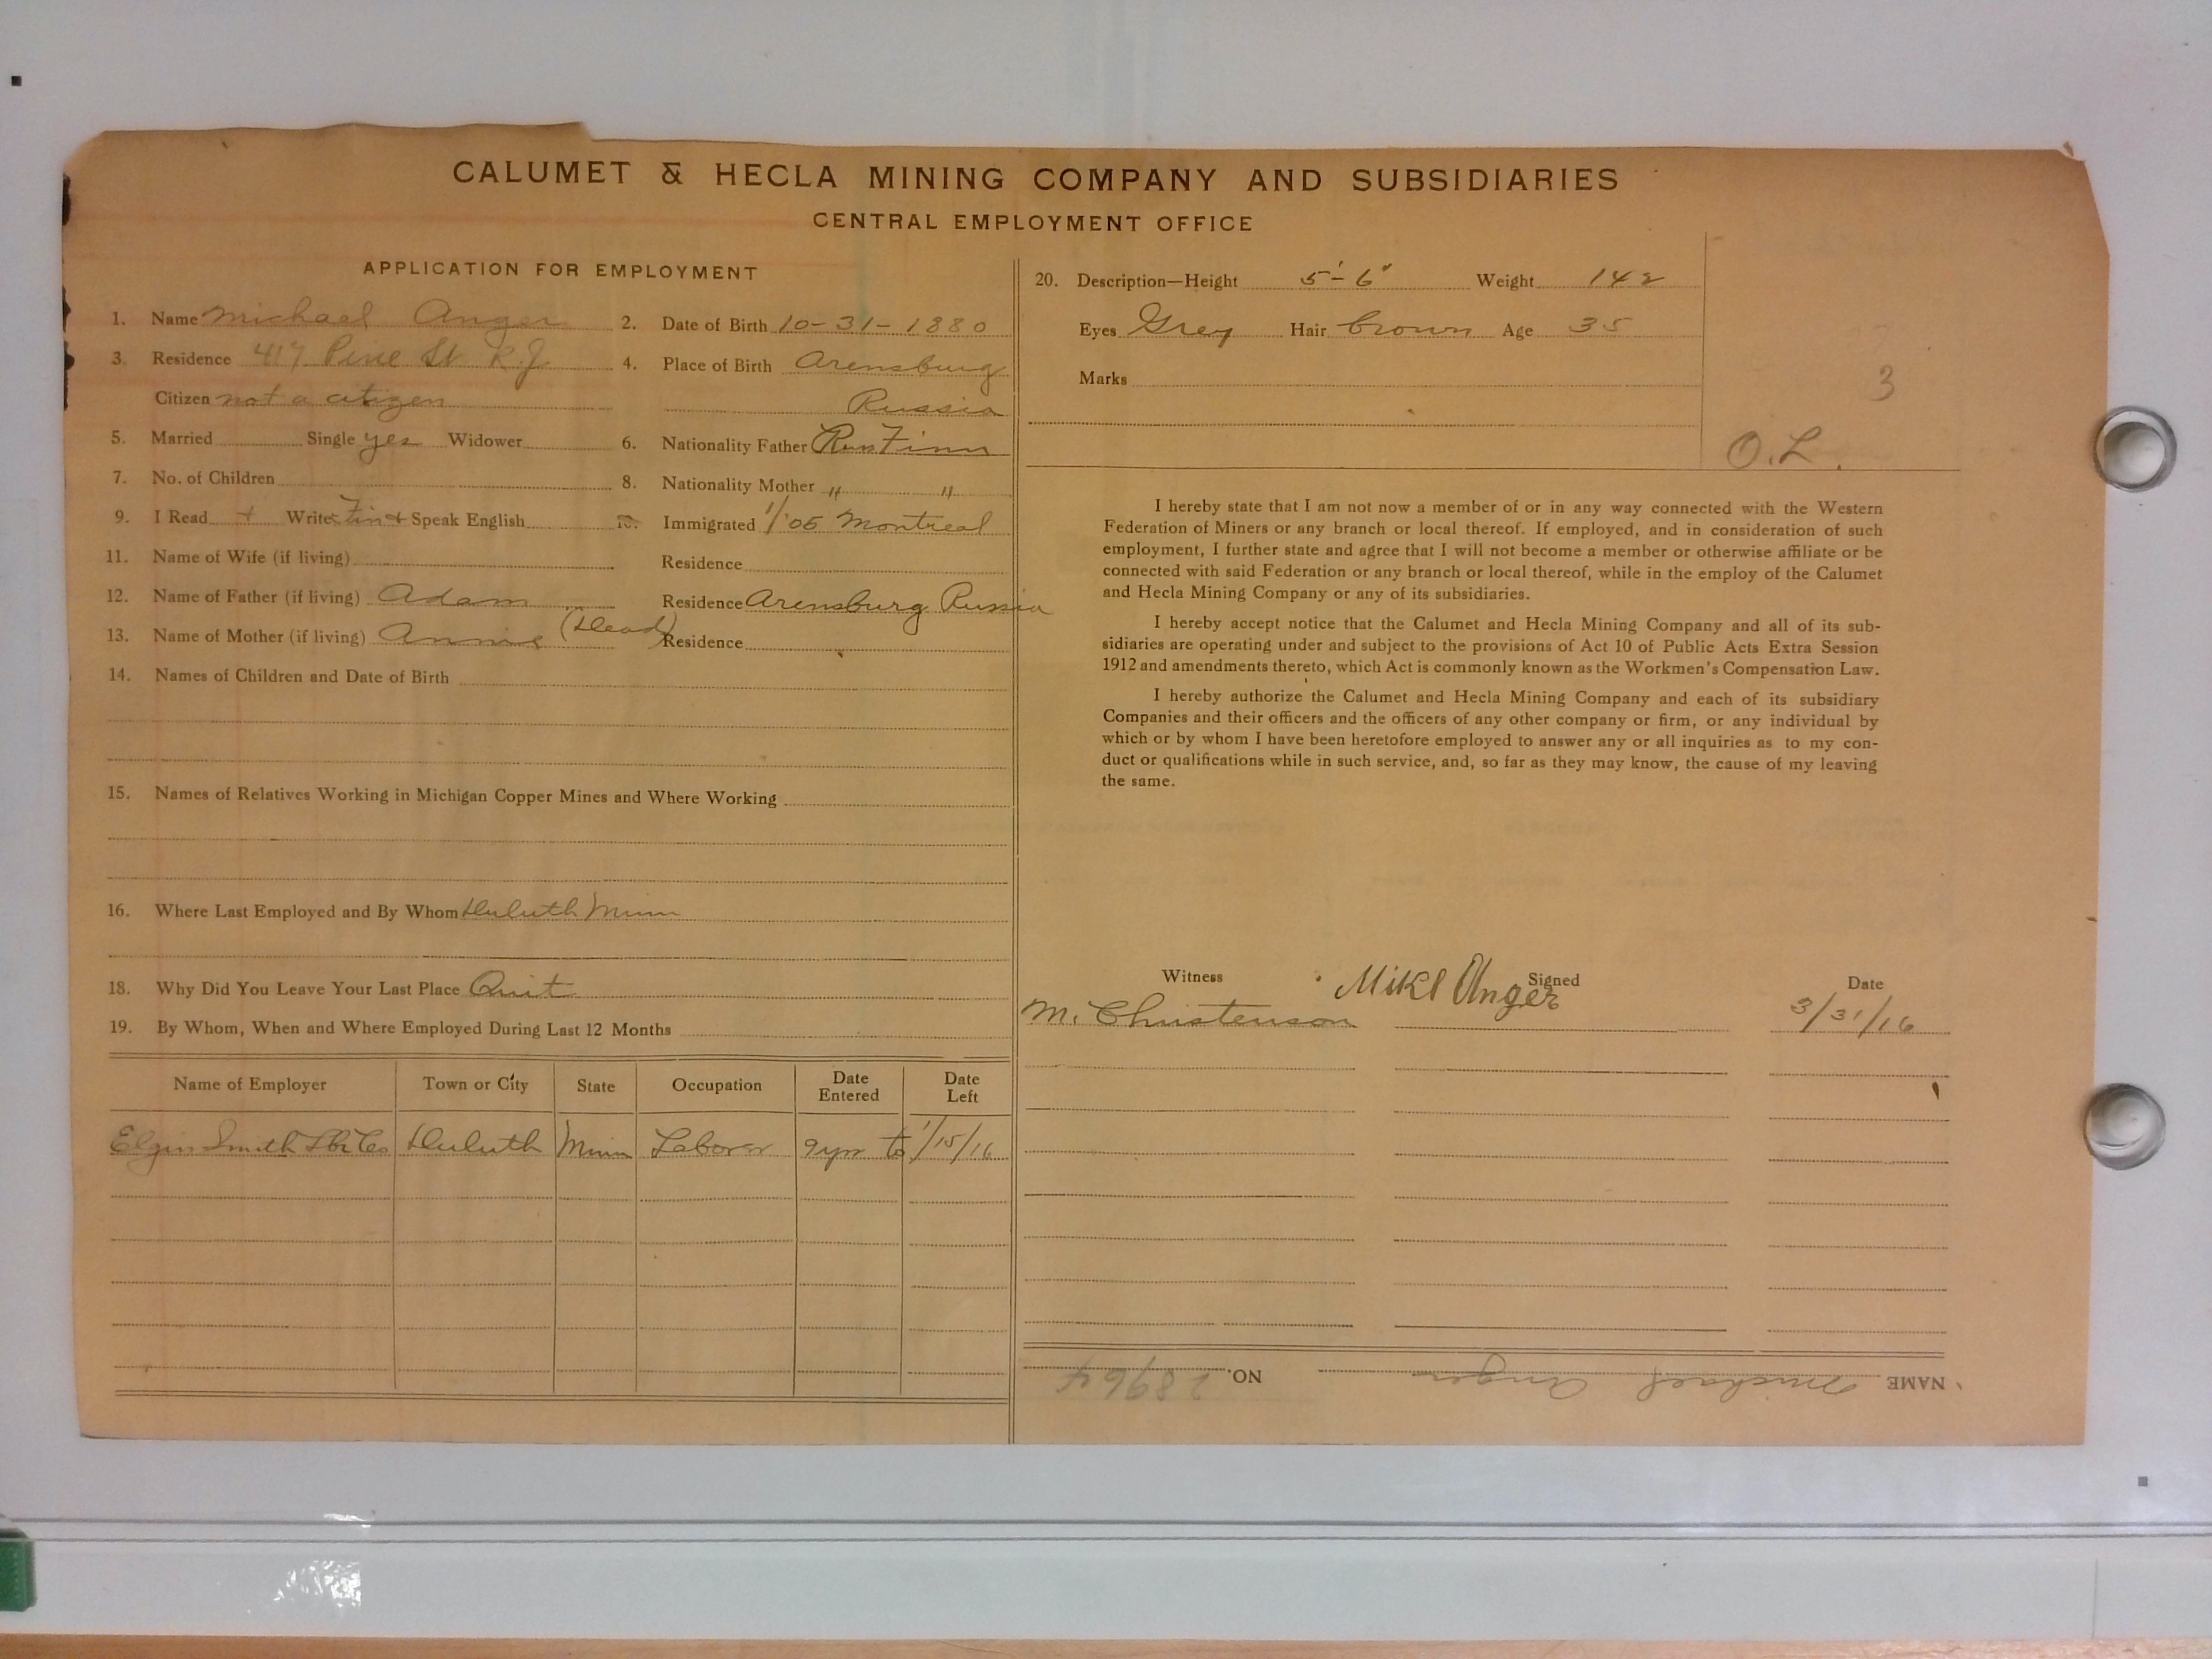 CALUMET & HECLA MINING COMPANY AND SUBSIDIARIES
CENTRAL EMPLOYMENT OFFICE
APPLICATION FOR EMPLOYMENT
1. Name Michael Anger 2. Date of Birth 10-31-1880
3. Residence 417 Pine St R.J. 4. Place of Birth Arensburg
Citizen not a citizen Russia
5. Married Single yes Widower 6. Nationality Father Russ Finn
7. No. of Children 8. Nationality Mother " "
9. I Read + Write Fin + Speak English 10. Immigrated 1/'05 Montreal
11. Name of Wife (if living) Residence
12. Name of Father (if living) Adam Residence Arensburg Russia
13. Name of Mother (if living) Annie (Dead) Residence
14. Names of Children and Date of Birth
15. Names of Relatives Working in Michigan Copper Mines and Where Working
16. Where Last Employed and By Whom Duluth Minn
18. Why Did You Leave Your Last Place Quit
19. By Whom, When and Where Employed During Last 12 Months
Name of Employer Town or City State Occupation Date Entered Date Left
Elgin Smith Lbr Co Duluth Minn Laborer 9 yrs to 1/15/16
20. Description—Height 5'-6" Weight 142
Eyes Grey Hair brown Age 35
Marks
3
O.L.
I hereby state that I am not now a member of or in any way connected with the Western
Federation of Miners or any branch or local thereof. If employed, and in consideration of such
employment, I further state and agree that I will not become a member or otherwise affiliate or be
connected with said Federation or any branch or local thereof, while in the employ of the Calumet
and Hecla Mining Company or any of its subsidiaries.
I hereby accept notice that the Calumet and Hecla Mining Company and all of its sub-
sidiaries are operating under and subject to the provisions of Act 10 of Public Acts Extra Session
1912 and amendments thereto, which Act is commonly known as the Workmen's Compensation Law.
I hereby authorize the Calumet and Hecla Mining Company and each of its subsidiary
Companies and their officers and the officers of any other company or firm, or any individual by
which or by whom I have been heretofore employed to answer any or all inquiries as to my con-
duct or qualifications while in such service, and, so far as they may know, the cause of my leaving
the same.
Witness Signed Date
M. Christenson Mike Anger 3/31/16
NAME Michael Anger NO. 28964